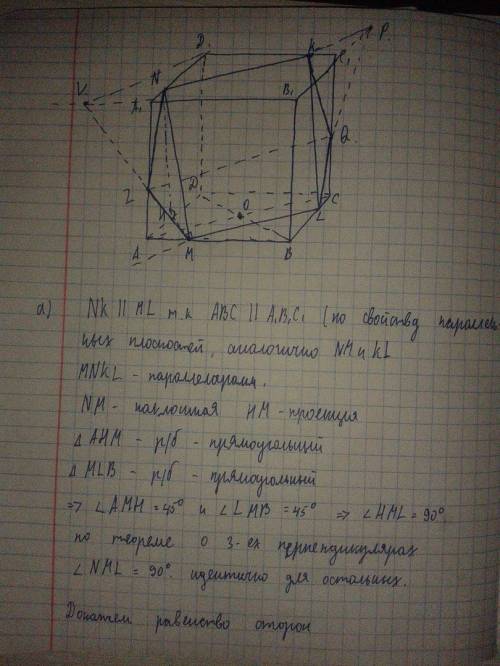 V
D
K
P.
N
A₁
B₁
C₁
Z
Q
D
H
O
C
L
A
M
B
а) NK || ML т.к ABC || A₁B₁C₁ (по свойству параллель
ных плоскостей, аналогично NM и KL
MNKL - параллелограмм.
NM - наклонная HM - проекция
△ AHM - р/б - прямоугольный
△ MLB - р/б - прямоугольный
⇒ ∠AMH = 45° и ∠LMB = 45° ⇒ ∠HML = 90°
по теореме о 3-ех перпендикулярах
∠NML = 90°. идентично для остальных.
Докажем равенство сторон